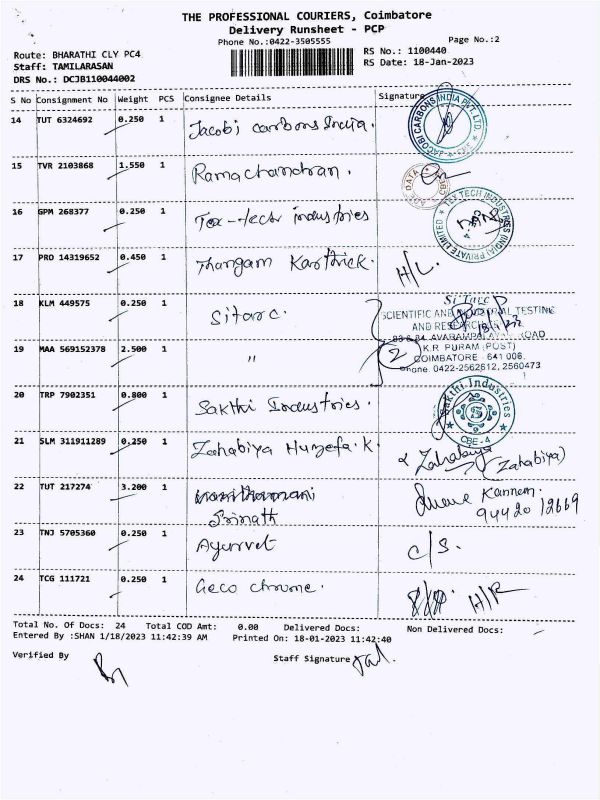 THE PROFESSIONAL COURIERS, Coimbatore
Delivery Runsheet - PCP
Phone No.:0422-3505555
Page No.:2
Route: BHARATHI CLY PC4
RS No.: 1100440
Staff: TAMILARASAN
RS Date: 18-Jan-2023
DRS No.: DCJB110044002
S No Consignment No Weight PCS Consignee Details Signature
14 TUT 6324692 0.250 1 Jacobi carbons India.
JACOBI CARBONS INDIA PVT. LTD.
15 TVR 2103868 1.550 1 Ramachandran.
16 GPM 268377 0.250 1 Tex-tech industries
TEX TECH INDUSTRIES (INDIA) PRIVATE LIMITED
17 PRO 14319652 0.450 1 Thangam Karthick. H/L.
18 KLM 449575 0.250 1 Sitarc.
Si'Tarc
SCIENTIFIC AND INDUSTRIAL TESTING
AND RESEARCH
19 MAA 569152378 2.500 1 "
83 & 84, AVARAMPALAYAM ROAD
2 K.R. PURAM (POST)
COIMBATORE - 641 006.
Phone: 0422-2562612, 2560473
20 TRP 7902351 0.800 1 Sakthi Industries.
Sakthi Industries
CBE - 4
21 SLM 311911289 0.250 1 Zahabiya Huzefa.K. Zahabiya (Zahabiya)
22 TUT 217274 3.200 1
Srinath
Kannan.
94420 12669
23 TNJ 5705360 0.250 1 Ayurvet C/S.
24 TCG 111721 0.250 1 Geco chrome. H/R
Total No. Of Docs: 24 Total COD Amt: 0.00 Delivered Docs: Non Delivered Docs:
Entered By :SHAN 1/18/2023 11:42:39 AM Printed On: 18-01-2023 11:42:40
Verified By Staff Signature